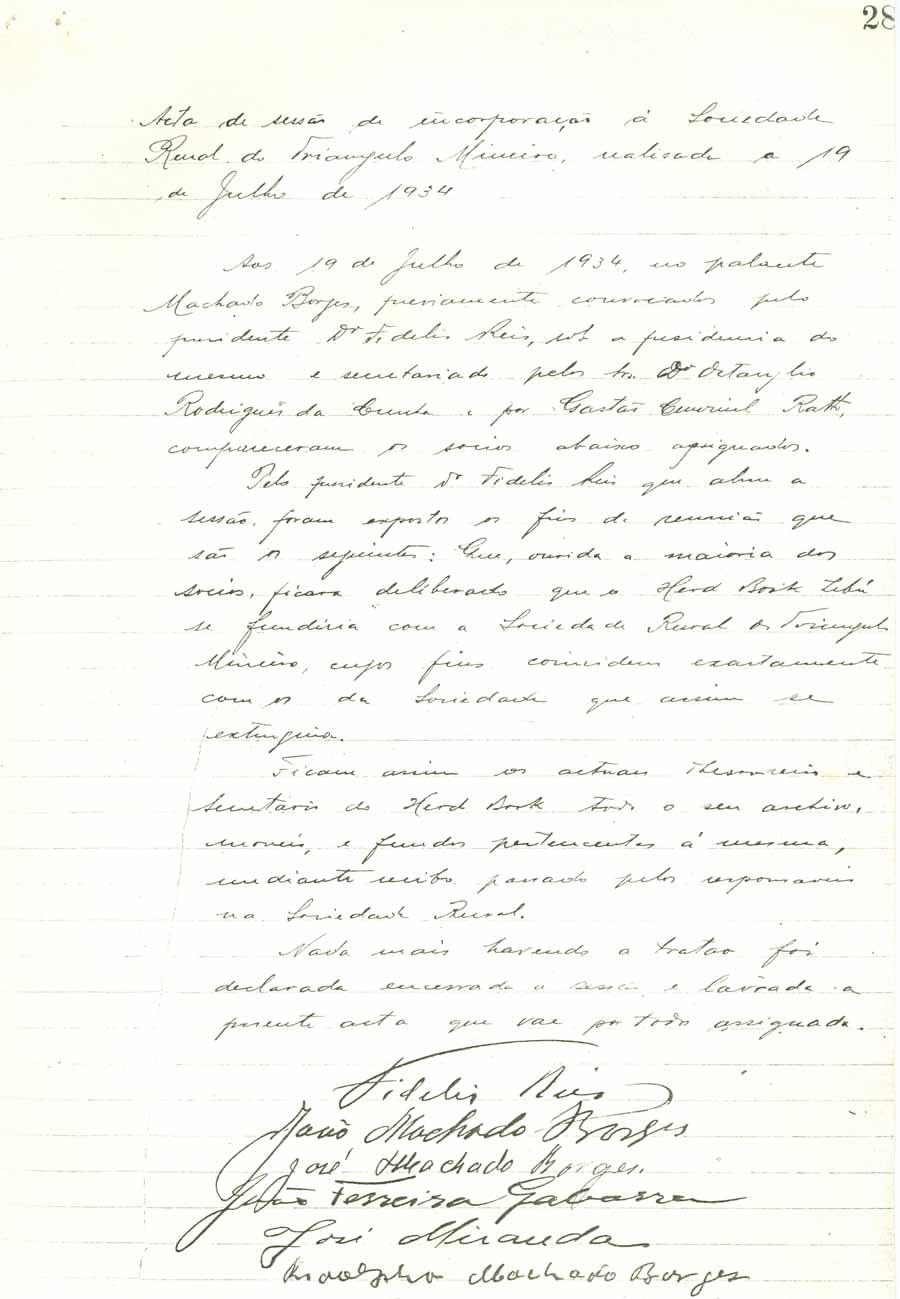 28
Acta de sessão de incorporação á Sociedade
Rural do Triangulo Mineiro, realisada a 19
de Julho de 1934
Aos 19 de Julho de 1934, no palacete
Machado Borges, previamente convocados pelo
presidente Dr Fidelis Reis, sob a presidencia do
mesmo e secretariado pelos Dr Octavio
Rodrigues da Cunha e por Gastão Rath,
compareceram os socios abaixo assignados.
Pelo presidente Dr Fidelis Reis que abriu a
sessão, foram expostos os fins da reunião que
são os seguintes: Que, ouvida a maioria dos
socios, ficara deliberado que o Herd Book Zebú
se fundiria com a Sociedade Rural do Triangulo
Mineiro, cujos fins coincidem exactamente
com os da Sociedade que assim se
extinguira.
Ficam assim os actuaes Thesoureiro e
Secretario do Herd Book todo o seu archivo,
moveis, e fundos pertencentes á mesma,
mediante recibo passado pelos responsaveis
na Sociedade Rural.
Nada mais havendo a tratar foi
declarada encerrada a sessão e lavrada a
presente acta que vae por todos assignada.
Fidelis Reis
João Machado Borges
José Machado Borges.
João Ferreira
José Miranda
Rodolpho Machado Borges